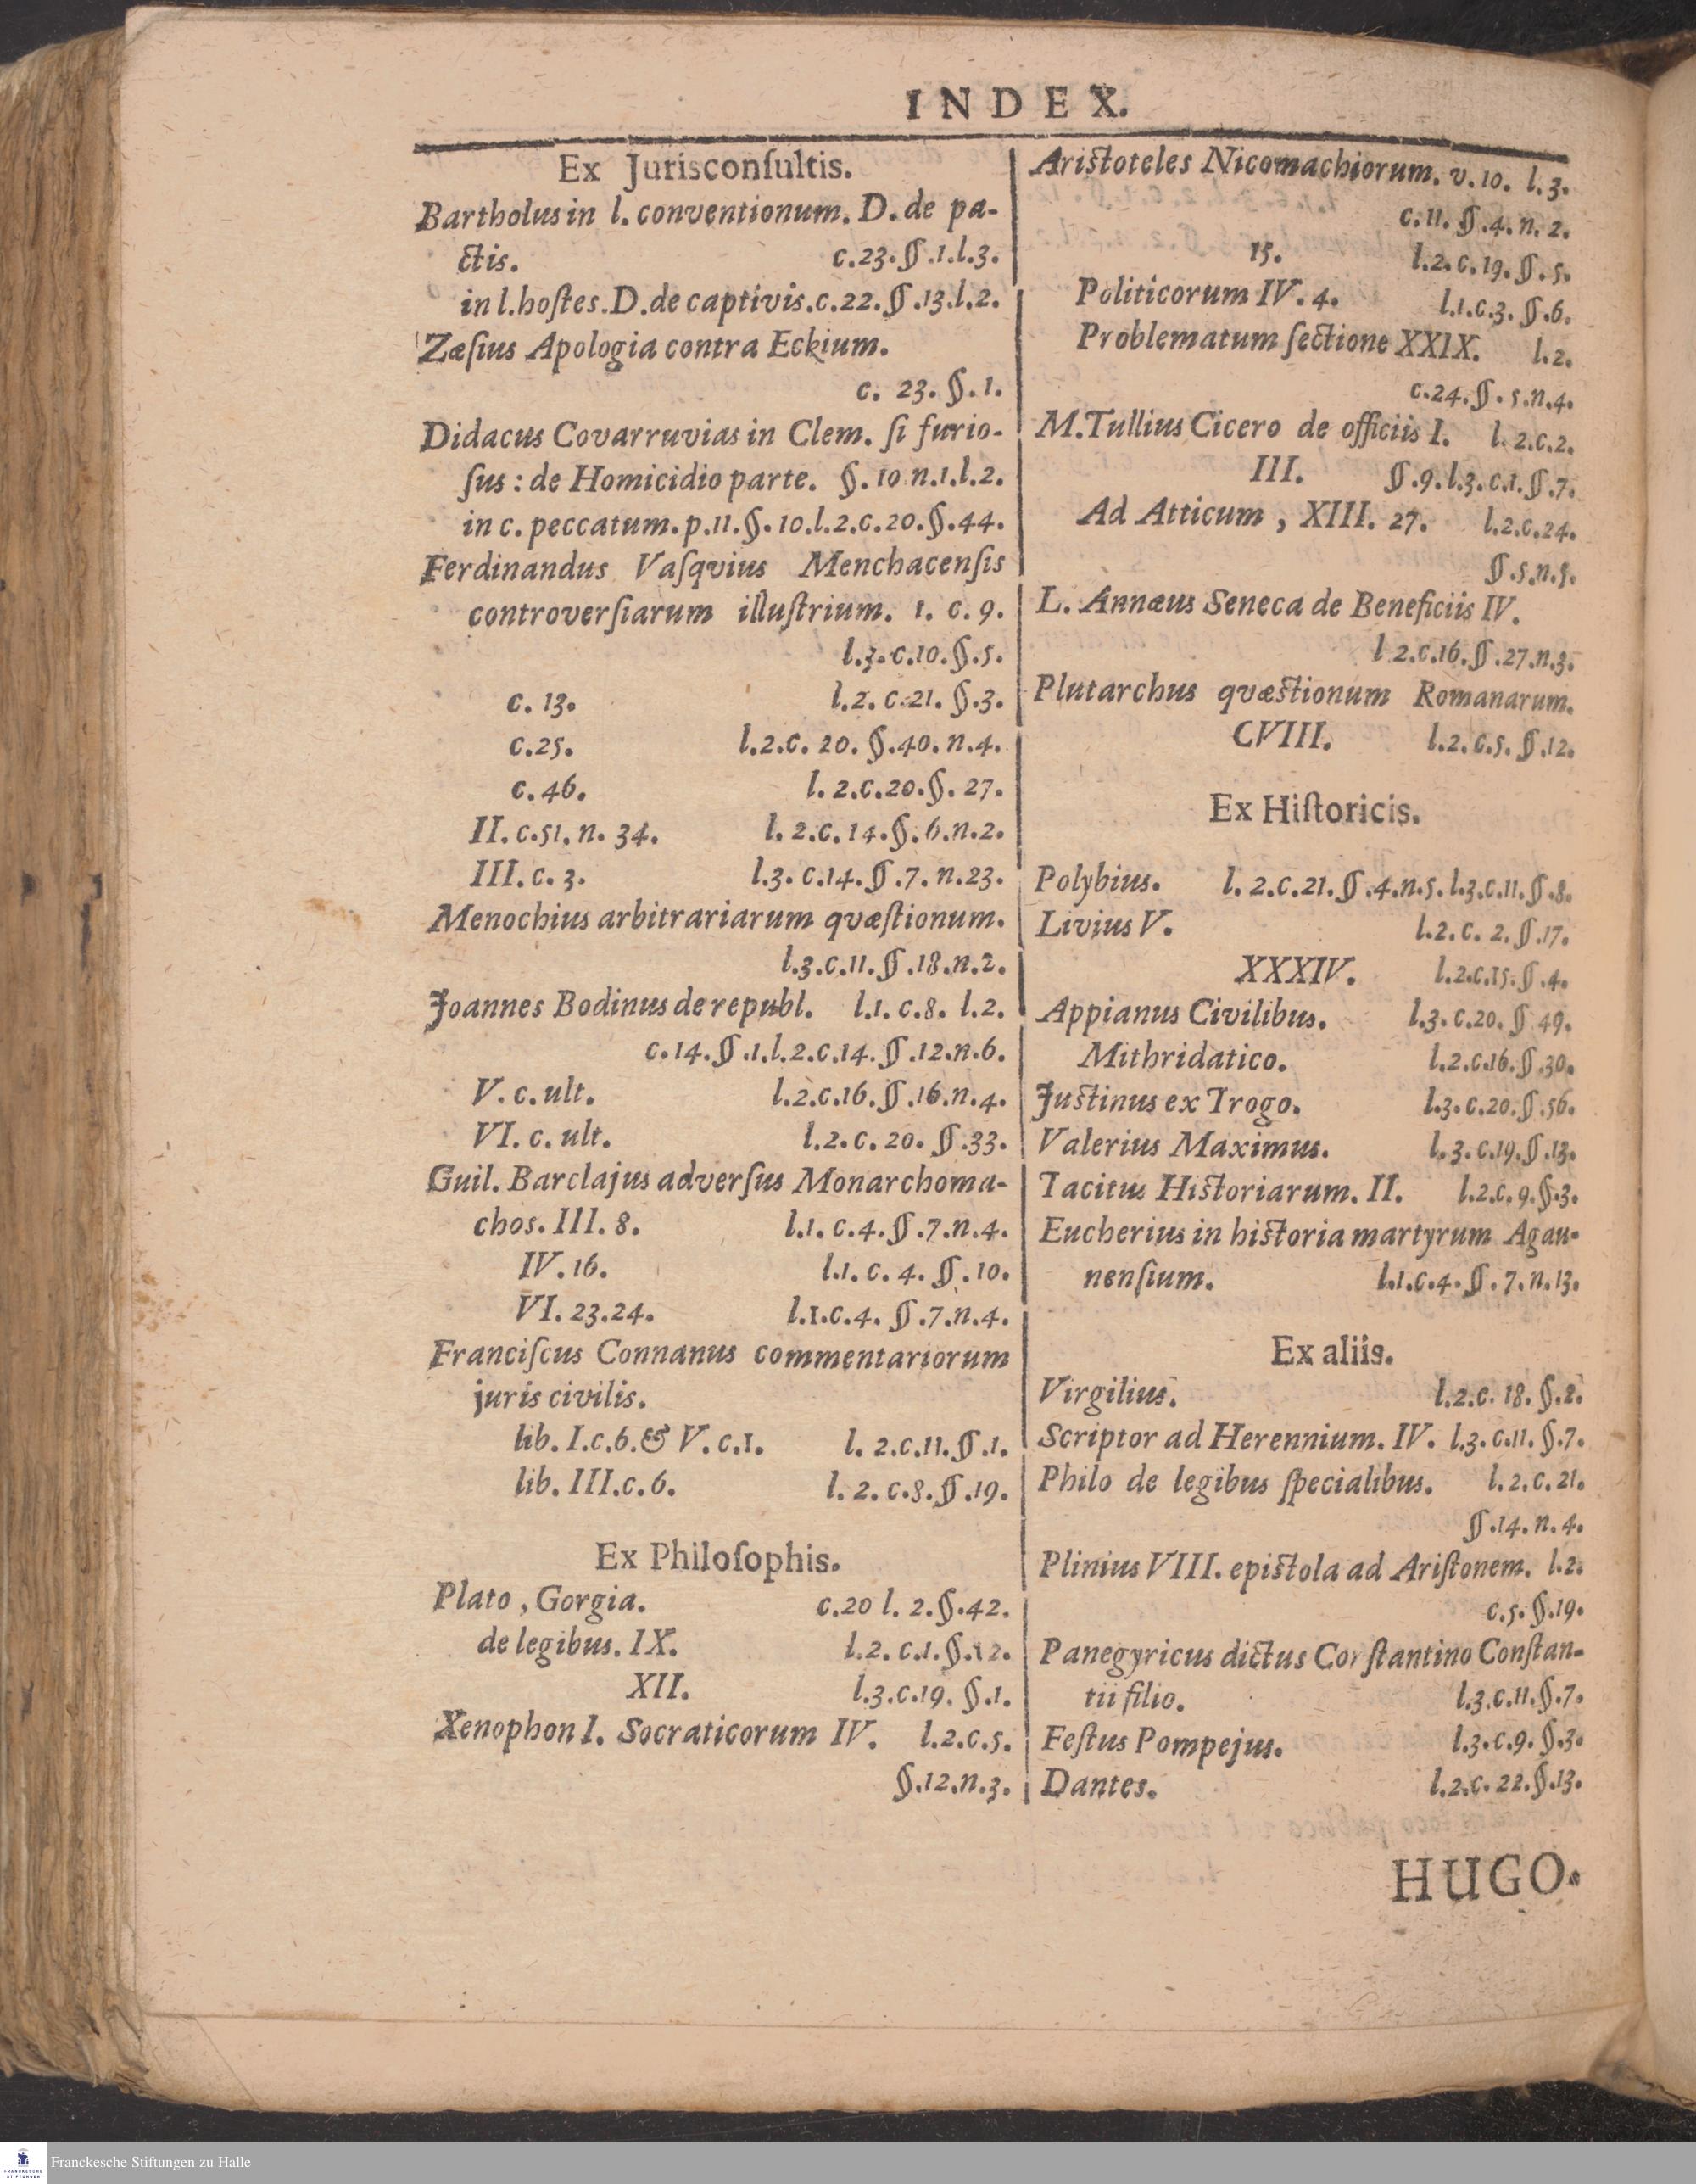 INDEX.
Ex Jurisconſultis.
Bartholus in l. conventionum. D. de pa-
ctis. c.23.§.1.l.3.
in l. hoſtes. D. de captivis. c.22.§.13.l.2.
Zæſius Apologia contra Eckium.
c. 23. §. 1.
Didacus Covarruvias in Clem. ſi furio-
ſus: de Homicidio parte. §. 10 n.1.l.2.
in c. peccatum. p.11.§. 10.l.2.c.20.§.44.
Ferdinandus Vaſqvius Menchacenſis
controverſiarum illuſtrium. 1. c. 9.
l.3.c.10.§.5.
c. 13. l.2. c.21. §.3.
c.25. l.2.c. 20. §.40. n.4.
c. 46. l. 2.c.20.§. 27.
II. c.51. n. 34. l. 2.c.14.§.6.n.2.
III. c. 3. l.3. c.14. §.7. n.23.
Menochius arbitrariarum quæſtionum.
l.3.c.11.§.18.n.2.
Joannes Bodinus de republ. l.1. c.8. l.2.
c.14.§.1.l.2.c.14.§.12.n.6.
V. c. ult. l.2.c.16.§.16.n.4.
VI. c. ult. l.2. c. 20. §.33.
Guil. Barclajus adverſus Monarchoma-
chos. III. 8. l.1. c.4.§.7.n.4.
IV. 16. l.1. c. 4. §.10.
VI. 23.24. l.1.c.4. §.7.n.4.
Franciſcus Connanus commentariorum
juris civilis.
lib. I.c.6.& V. c.1. l. 2.c.11.§.1.
lib. III.c.6. l. 2. c.8.§.19.
Ex Philoſophis.
Plato, Gorgia. c.20 l. 2.§.42.
de legibus. IX. l.2. c.1.§.12.
XII. l.3.c.19. §.1.
Xenophon I. Socraticorum IV. l.2.c.5.
§.12.n.3.
Ariſtoteles Nicomachiorum. v. 10. l.3.
c.11. §.4. n. 2.
15. l.2.c.19. §.5.
Politicorum IV. 4. l.1.c.3. §.6.
Problematum ſectione XXIX. l.2.
c.24.§. 5.n.4.
M. Tullius Cicero de officiis I. l. 2.c.2.
III. §.9.l.3.c.1.§.7.
Ad Atticum, XIII. 27. l.2.c.24.
§.5.n.5.
L. Annæus Seneca de Beneficiis IV.
l 2.c.16.§.27.n.3.
Plutarchus quæſtionum Romanarum.
CVIII. l.2.c.5. §.12.
Ex Hiſtoricis.
Polybius. l. 2.c.21.§.4.n.5.l.3.c.11.§.8.
Livius V. l.2.c. 2.§.17.
XXXIV. l.2.c.15.§.4.
Appianus Civilibus. l.3. c.20. § 49.
Mithridatico. l.2.c.16.§.30.
Juſtinus ex Trogo. l.3. c.20.§.56.
Valerius Maximus. l.3. c.19.§.13.
Tacitus Hiſtoriarum. II. l.2.c. 9.§.3.
Eucherius in hiſtoria martyrum Agau-
nenſium. l.1.c.4.§. 7. n.13.
Ex aliis.
Virgilius. l.2.c. 18. §.2.
Scriptor ad Herennium. IV. l.3. c.11. §.7.
Philo de legibus ſpecialibus. l. 2.c.21.
§.14. n. 4.
Plinius VIII. epiſtola ad Ariſtonem. l.2.
c.5. §.19.
Panegyricus dictus Corſtantino Conſtan-
tii filio. l.3.c.11.§.7.
Feſtus Pompejus. l.3.c.9. §.3.
Dantes. l.2.c. 22.§.13.
HUGO.
FRANCKESCHE
STIFTUNGEN
Franckesche Stiftungen zu Halle